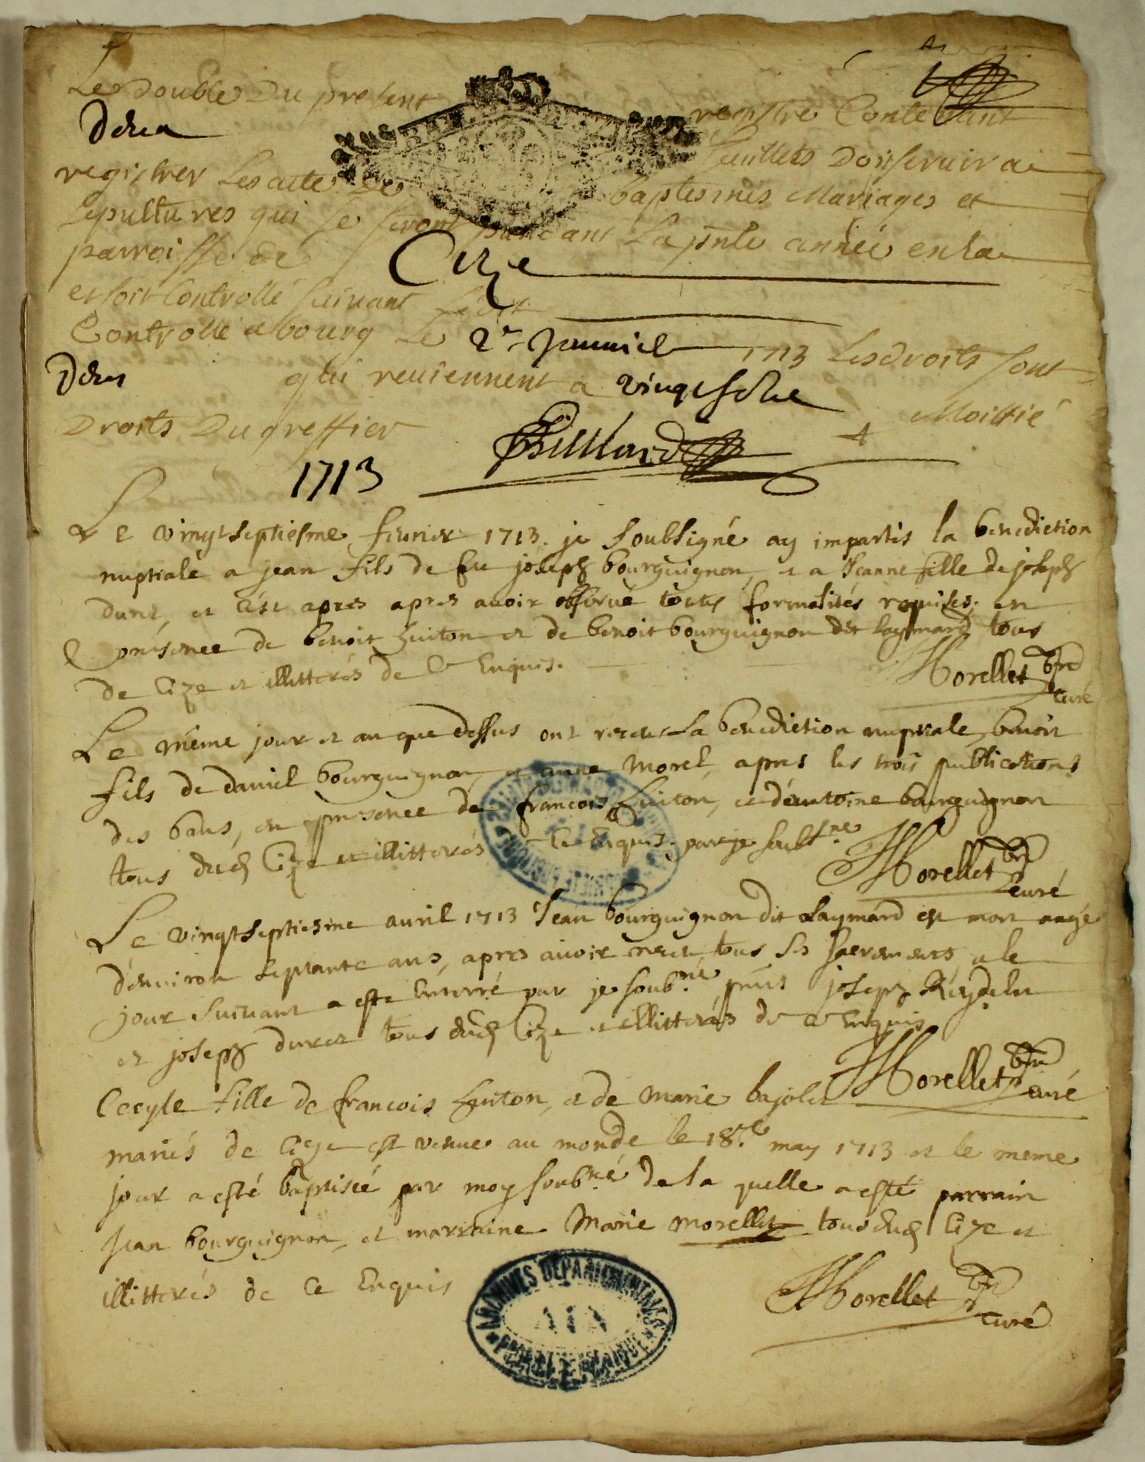 Le double du present registre Contenant
deux feuillets doit servir a
registrer les actes de baptesmes Mariages et
sepultures qui se feront pendant la pnte année en la
parroisse de Cize
et soit Controllé suivant Ledit
Controllé a bourg Le 2e Janvier 1713 Les droits sont
qui reviennent a vingt Moittié
Droits Du greffier
1713
Le vingtseptiesme fevrier 1713. je soubsigné ay impartis la benediction
nuptiale a jean fils de feu joseph bourguignon, et a Jeanne fille de joseph
et c'est apres apres avoir observé toutes formalités requises, en
presence de benoit Guiton et de benoit bourguignon dit Laymard tous
de Cize et illitterés de ce Enquis.
Morellet pbre
curé
Le même jour et an que dessus ont receu La benediction nuptiale, benoit
fils de daniel bourguignon, et anne Morel, apres les trois publications
des bans, en presence de francois Guiton, et d'antoine bourguignon
tous dud Cize et illitterés de ce Enquis, par je soubsné
Morellet pbre
curé
Le vingtseptiesme avril 1713 Jean bourguignon dit Laymard est mort aagé
d'environ septante ans, apres avoir receu tous les sacremens, et le
jour suivant a esté Enterré par je soubsné joseph
et joseph tous dud Cize et illitterés de ce Enquis
Morellet pbre
curé
Cecyle fille de francois Guiton, et de Marie
mariés de Cize est venue au monde le 18e may 1713 et le meme
jour a esté baptisée par moy soubsné de la quelle a esté parrain
Jean bourguignon, et marraine Marie Morellet tous dud Cize et
illitterés de ce Enquis
Morellet pbre
curé
ARCHIVES DEPARTEMENTALES
AIN